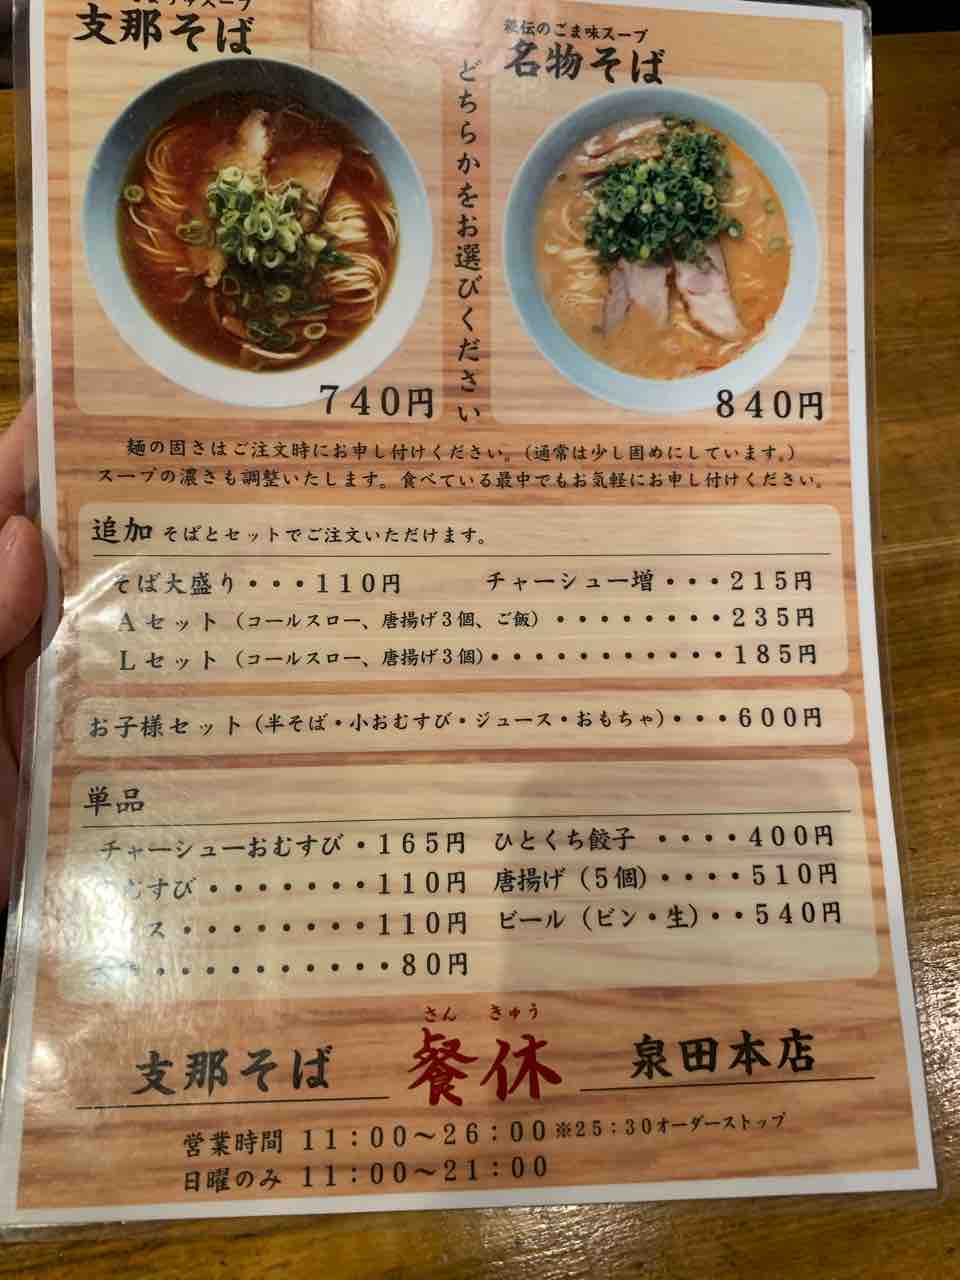 支那そば
秘伝のごま味スープ
名物そば
どちらかをお選びください
740円
840円
麺の固さはご注文時にお申し付けください。(通常は少し固めにしています。)
スープの濃さも調整いたします。食べている最中でもお気軽にお申し付けください。
追加 そばとセットでご注文いただけます。
そば大盛り・・・110円
チャーシュー増・・・215円
Aセット(コールスロー、唐揚げ3個、ご飯)・・・・・・・・235円
Lセット(コールスロー、唐揚げ3個)・・・・・・・・・・・185円
お子様セット(半そば・小おむすび・ジュース・おもちゃ)・・・600円
単品
チャーシューおむすび・165円
むすび・・・・・・・110円
ス・・・・・・・・110円
・・・・・・・・・・80円
ひとくち餃子・・・・400円
唐揚げ(5個)・・・・510円
ビール(ビン・生)・・540円
さん きゅう
支那そば 餐休 泉田本店
営業時間 11:00〜26:00 ※25:30オーダーストップ
日曜のみ 11:00〜21:00